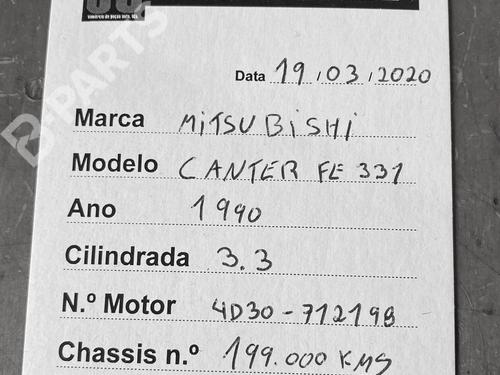 Data 19/03/2020
Marca MiTSUBiSHi
Modelo CANTER FE 331
Ano 1990
Cilindrada 3.3
N.º Motor 4D30-712198
Chassis n.º 199.000 KMS
B-PARTS